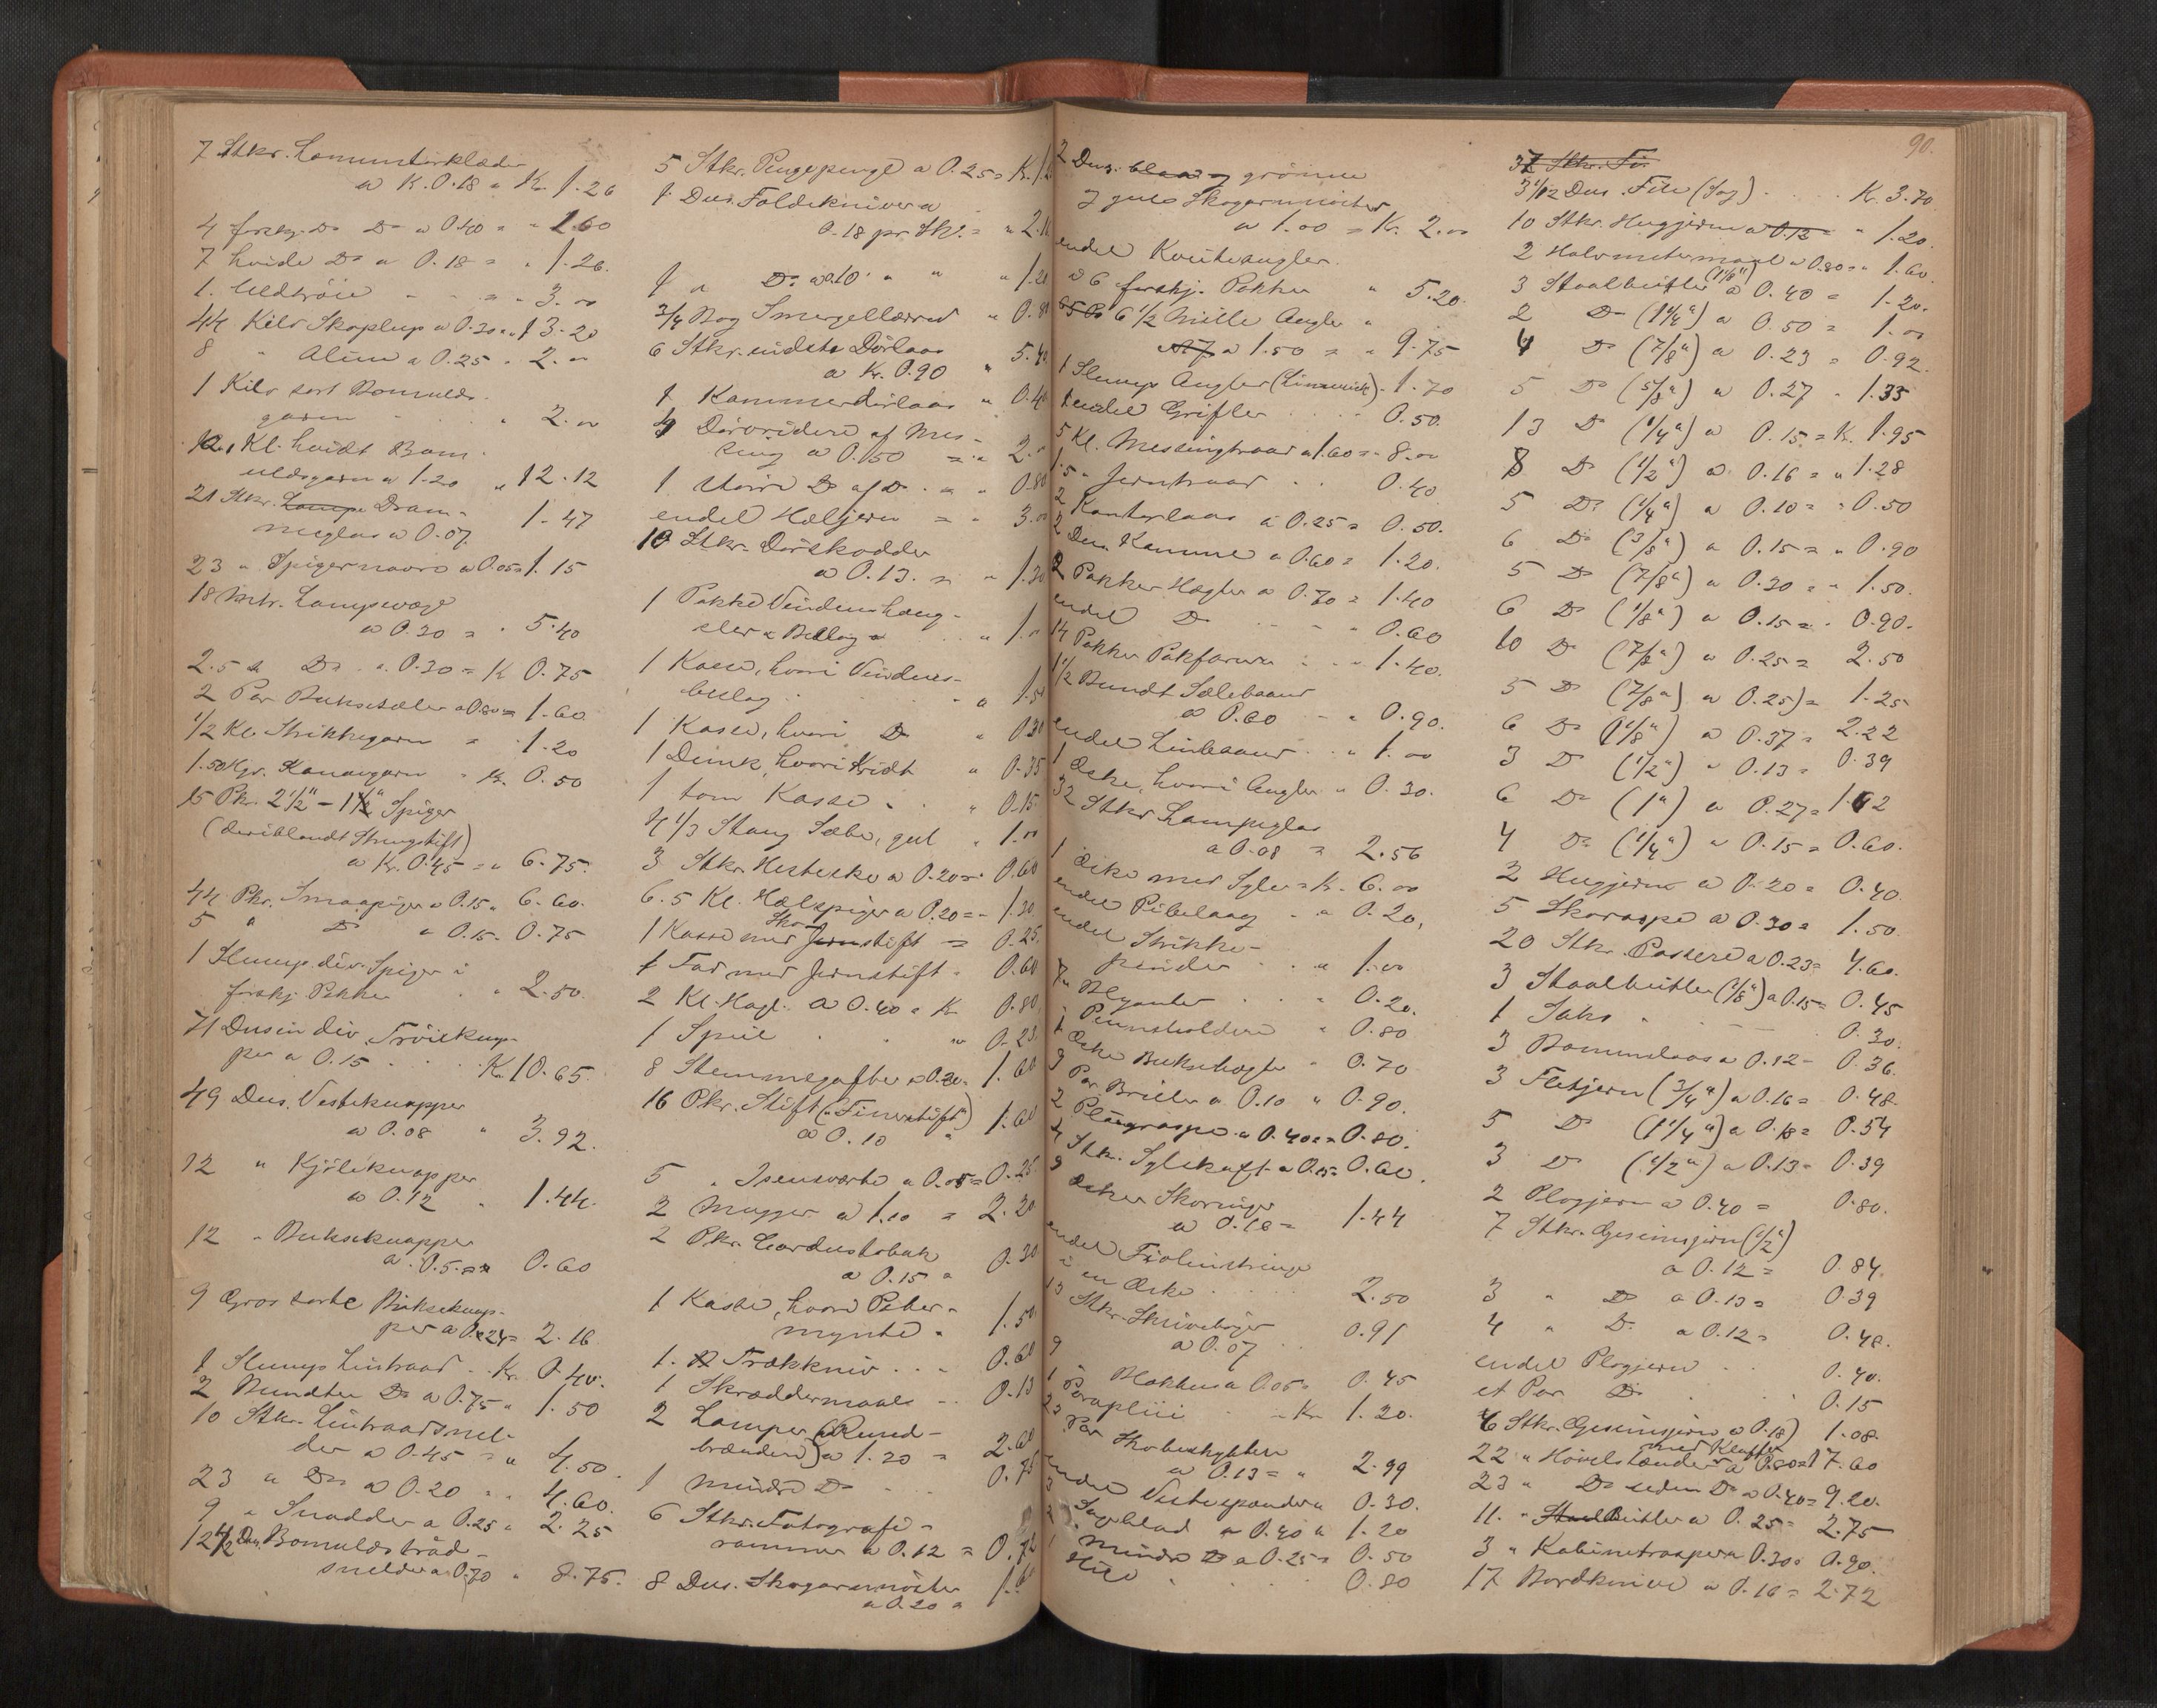 7 Stkr. Lommetörklæder
a K. 0.18 = Kr. 1.26
4 forskj. Do Do a 0.40 = " 1.60
7 hvide Do a 0.18 = " 1.26.
1. Uldtröie - - = " 3.00
44 Kilo Skoplug a 0.30 = " 13.20
8 " Alun a 0.25 " 2.00
1 Kilo sort Bomulds-
garn " 2.00
10.1 Kl. hvidt Bom-
uldsgarn a 1.20 " 12.12
21 Stkr. Dram-
meglas a 0.07. 1.47
23 " Spigernavre a 0.05 = 1.15
18 Mtr. Lampevæge
a 0.30 = " 5.40
2.5 " Do " a 0.30 = K 0.75
2 Par Buksesæler a 0.80 = 1.60
1/2 Kl. Strikkegarn = 1.20
1.50 Kgr. Kanvasgarn = K. 0.50
15 Pkr. 2 1/2" - 1 1/2" Spiger
(deriblandt Strengstift)
a Kr. 0.45 = " 6.75.
44 Pkr. Smaaspiger a 0.15 " 6.60.
5 " Do " 0.15 = 0.75
1 Slump div. Spiger i
forskj. Pakker " 2.50.
71 Dusin div. Tröieknap-
per a 0.15 . . K. 10.65.
49 Dus. Vesteknapper
a 0.08 " 3.92.
12 " Kjöleknapper
a 0.12 " 1.44.
12 " Bukseknapper
a 0.5 = " 0.60
9 Gros sorte Bukseknap-
per a 0.24 = 2.16
1 Slump Lintraad . Kr. 0.40.
2 Bundter Do a 0.75 " 1.50
10 Stkr. Lintraadsnel-
der a 0.45 = " 4.50.
23 " Do a 0.20 " 4.60.
9 " Snadder a 0.25 " 2.25
12 1/2 Dus. Bomuldstråd-
snelder a 0.70 " 8.75.
5 Stkr. Pengepunge a 0.25 = K. 1.
1 Dus. Foldekniver a
0.18 pr. Stk. = " 2.1
1 " Do a 0.10 " " " 1.20
3/4 Bog Smergellærred " 0.80
6 Stkr. indsta Dörlaas
a Kr. 0.90 " 5.40
1 Kammerdörlaas " 0.40
4 Dörvridere af Mes-
sing a 0.50 = " 2.
1 större Do af Do . = " 0.80
endel Hælejern = " 3.00
10 Stkr. Dörskodder
a 0.13. = " 1.30
1 Pakke Vindueshæng-
sler & Beslag . . " 1.
1 Kasse, hvori Vindues-
beslag . . " 1.5
1 Kasse, hvori Do " 0.30
1 Dunk, hvori Kridt " 0.35
1 tom Kasse . . " 0.15
4 1/3 Stang Sæbe, gul " 1.00
3 Stkr. Hestesko a 0.20 = 0.60
6.5 Kl. Hælspiger a 0.20 = " 1.30
Sko-
1 Kasse med stift = 0.25.
1 Fad med Jernstift " 0.60
2 Kl. Hagl. a 0.40 = Kr 0.80
1 Speil . . " 0.25
8 Stemmegafler a 0.20. 1.60
16 Pkr. Stift ("Finerstift")
a 0.10 " 1.60
5 " Isensværte a 0.05 = 0.25
2 Mugger a 1.10 = 2.20
2 Pkr. Cardustobak
a 0.15 = 0.30
1 Kasse, hvori Peber-
mynte " 1.50
1. Trækkniv . . . 0.60
1 Skræddermaal - . 0.13
2 Lamper (Rund-
brændere) a 1.30 = 2.60
1 mindre Do . . 0.75
6 Stkr. Fotografi-
rammer a 0.12 = 0.72
8 Dus. Skogarnsnöster
a 0.20 = 1.60
2 Dus. grönne
& gule Skogarnsnöster
a 1.00 = Kr. 2.00
endel Kveiteangler.
a 6 forskj. Pakker " 5.20.
6 1/2 Mille Angler "
a 1.50 = " 9.75
1 Slump Angler (Limerick). 1.70
endel Grifler . . . 0.50.
5 Kl. Messingtraad a 1.60 = 8.00
1.5 " Jerntraad . . 0.40
2 Kantorlaas a 0.25 = 0.50.
2 Dus. Kamme a 0.60 = 1.20.
2 Pakker Hægter a 0.70 = 1.40
endel Do . . . 0.60
14 Pakker Pakfarver . . " 1.40.
1 1/2 Bundt Sælebaand
a 0.60 - " 0.90.
endel Linbaand . . " 1.00
1 Æske, hvori Angler " 0.30.
32 Stkr. Lampeglas
a 0.08 = 2.56
1 Æske med Syler = K. 6.00
endel Pibelaag . " 0.20,
endel Strikke-
pinder . . " 1.00
7 Blyanter . . . " 0.20.
" Penneholdere " 0.80
1 Æske Buksehægter " 0.70
9 Par Briller a 0.10 " 0.90.
2 a 0.40 = 0.80.
4 Stkr. Sylskaft a 0.15 = 0.60.
9 Æsker Skoringer
a 0.16 = 1.44
endel Fiolinstrenge
i en Æske . . . 2.50
13 Stkr. Skrivebøger
a 0.07 . 0.91
9 Blækhus a 0.05 = 0.45
1 Paraply . . Kr. 1.20.
23 Par Skobeskyttere
a 0.13 = " 2.99
endel Vestespænder " 0.30.
3 Sagblad a 0.40 " 1.20
2 mindre Do a 0.25 = 0.50
1 . . 0.80
90.
3 1/12 Dus. File (Sag) . . . K. 3.70
10 Stkr. Hugjern a " 1.20.
2 Halvmetermaal a 0.80 = " 1.60
3 Staalbeitler (1 1/8") a 0.40 = 1.20.
2 Do (1 1/4") a 0.50 = 1.00
4 Do (7/8") a 0.23 = 0.92.
5 Do (5/8") a 0.27 " 1.35
13 Do (1/4") a 0.15 = K. 1.95
8 Do (1/2") a 0.16 = " 1.28
5 Do (1/4") a 0.10 = " 0.50
6 Do (3/8") a 0.15 = " 0.90
5 Do (7/8") a 0.30 = " 1.50.
6 Do (1/8") a 0.15 = " 0.90.
10 Do (7/8") a 0.25 = 2.50
5 Do (7/8") a 0.25) = 1.25
6 Do (1 1/8") a 0.37 = 2.22
3 Do (1/2") a 0.13 = 0.39
6 Do (1") a 0.27 = 1.62
4 Do (1/4") a 0.15 = 0.60.
2 Hugjern a 0.20 = 0.40.
5 Skoraspe a 0.30 = 1.50.
20 Stk. Passere a 0.23 = 4.60.
3 Staalbeitler (1/8") a 0.15 = 0.45
1 Saks . . . 0.30.
3 Bommelaas a 0.12 - 0.36.
3 Fletjern (3/4") a 0.16 = 0.48.
5 Do (1 1/4") a 0.18 = 0.54
3 Do (1/2") a 0.13 = 0.39
2 Plogjern a 0.40 = 0.80.
7 Stkr. Gesimsjern (1/2")
a 0.12 = 0.84.
3 " Do a 0.13 = 0.39
4 " Do a 0.12 = 0.48.
endel Plogjern . . 0.40.
et Par Do . . 0.15
6 Stkr. Gesimsjern a 0.18) 1.08.
med Klaffer
22 " Hövelstænder a 0.80 = 17.60
23 " Do uden Do a 0.40 = 9.20.
11. " Beitler a 0.25 = 2.75
3 " Kabinetrasper a 0.30 = 0.90.
17 Bordkniver a 0.16 = 2.72